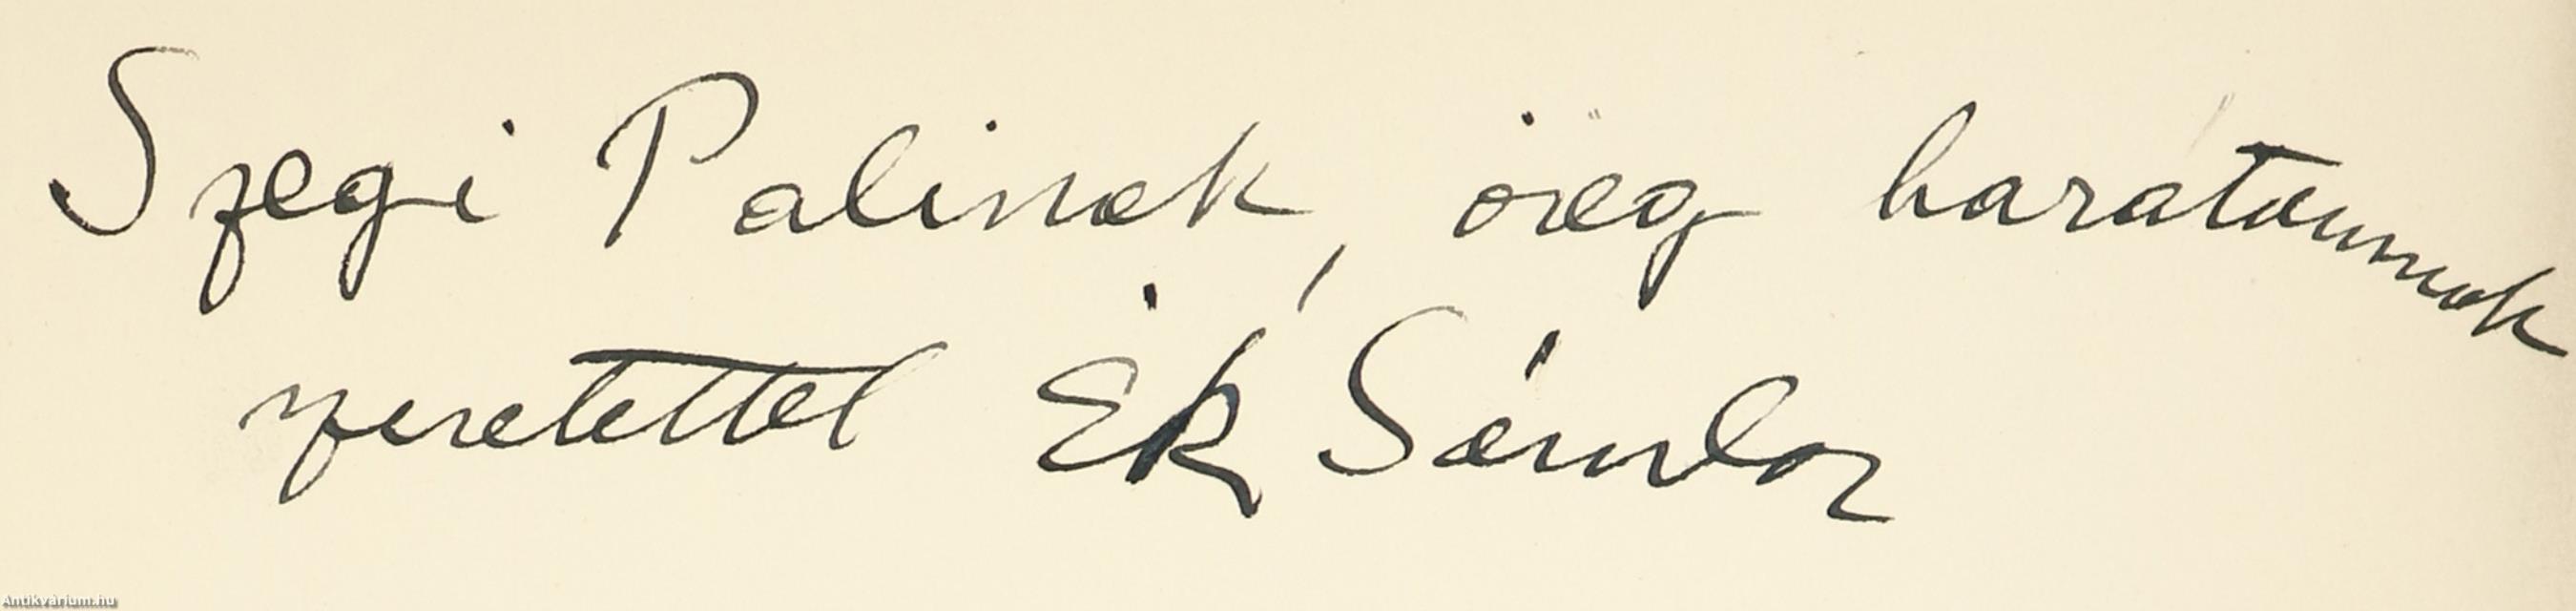 Szegi Palinak, öreg barátomnak
szeretettel Ék Sándor
Antikvárium.hu